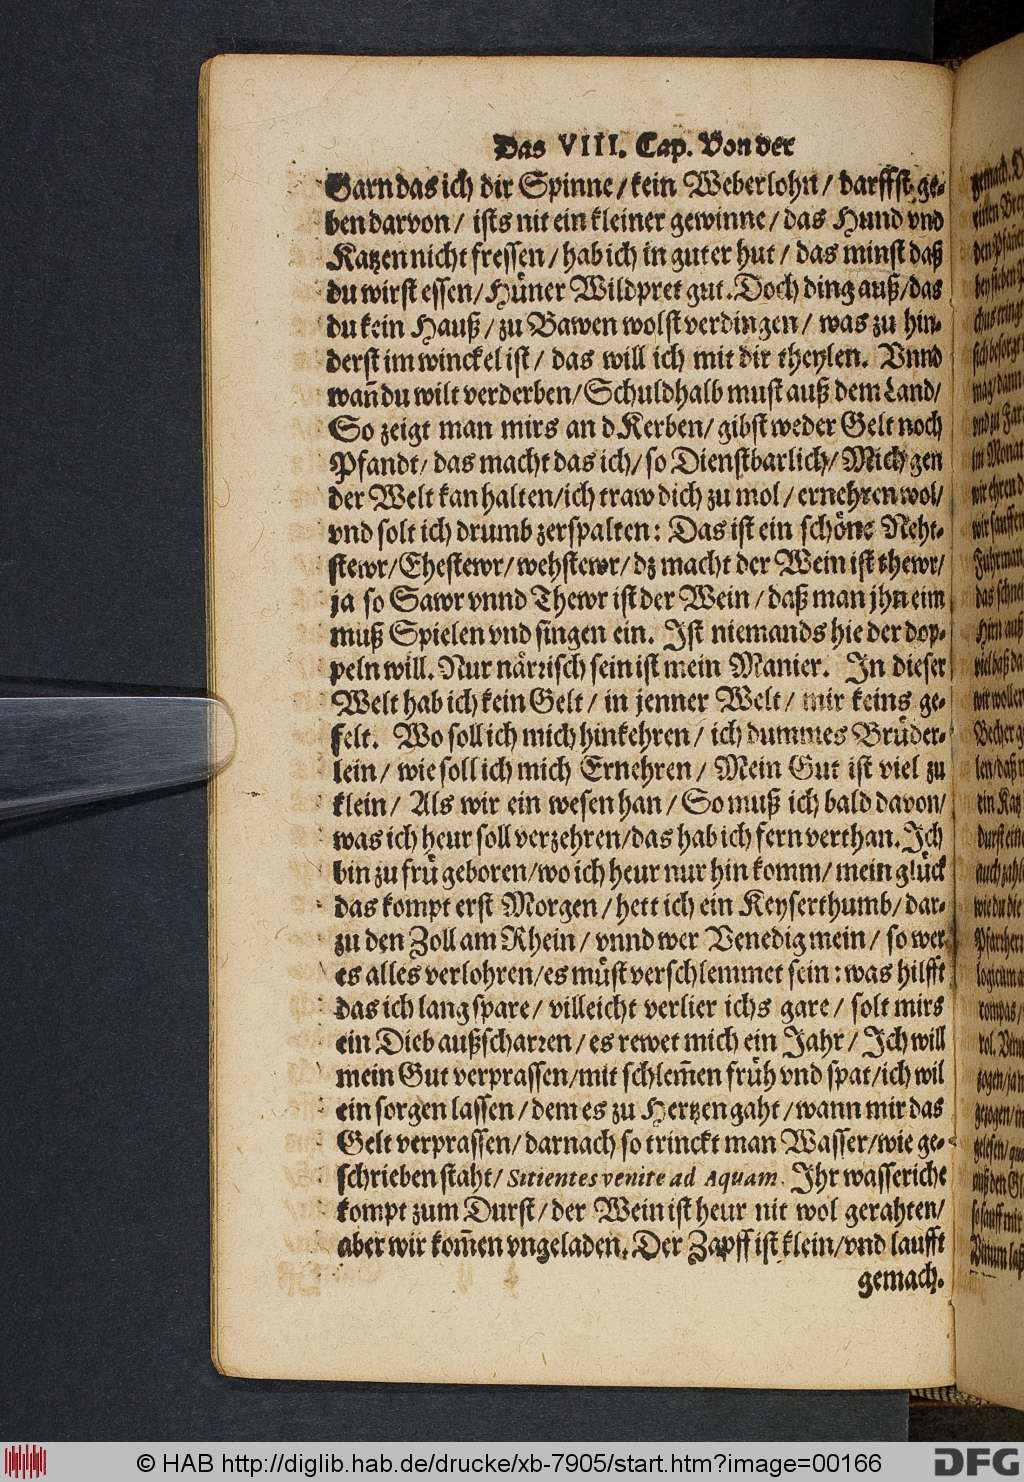 Das VIII. Cap. Von der
Garn das ich dir Spinne / kein Weberlohn / darffst ge-
ben darvon / ists nit ein kleiner gewinne / das Hund vnd
Katzen nicht fressen / hab ich in guter hut / das minst daß
du wirst essen / Hüner Wildpret gut. Doch ding auß / das
du kein Hauß / zu Bawen wolst verdingen / was zu hin-
derst im winckel ist / das will ich mit dir theylen. Vnnd
wañ du wilt verderben / Schuldhalb must auß dem Land /
So zeigt man mirs an d Kerben / gibst weder Gelt noch
Pfandt / das macht das ich / so Dienstbarlich / Mich gen
der Welt kan halten / ich traw dich zu mol / ernehren wol /
vnd solt ich drumb zerspalten: Das ist ein schöne Neht-
stewr / Ehestewr / wehstewr / dz macht der Wein ist thewr /
ja so Sawr vnnd Thewr ist der Wein / daß man jhn eim
muß Spielen vnd singen ein. Ist niemands hie der dop-
peln will. Nur närrisch sein ist mein Manier. In dieser
Welt hab ich kein Gelt / in jenner Welt / mir keins ge-
felt. Wo soll ich mich hinkehren / ich dummes Brüder-
lein / wie soll ich mich Ernehren / Mein Gut ist viel zu
klein / Als wir ein wesen han / So muß ich bald davon /
was ich heur soll verzehren / das hab ich fern verthan. Ich
bin zu frü geboren / wo ich heur nur hin komm / mein glück
das kompt erst Morgen / hett ich ein Keyserthumb / dar-
zu den Zoll am Rhein / vnnd wer Venedig mein / so wer
es alles verlohren / es müst verschlemmet sein: was hilfft
das ich lang spare / villeicht verlier ichs gare / solt mirs
ein Dieb außscharren / es rewet mich ein Jahr / Ich will
mein Gut verprassen / mit schlem̃en früh vnd spat / ich wil
ein sorgen lassen / dem es zu Hertzen gaht / wann mir das
Gelt verprassen / darnach so trinckt man Wasser / wie ge-
schrieben staht / Sitientes venite ad Aquam. Ihr wasseriche
kompt zum Durst / der Wein ist heur nit wol gerahten /
aber wir kom̃en vngeladen. Der Zapff ist klein / vnd laufft
gemach.
© HAB http://diglib.hab.de/drucke/xb-7905/start.htm?image=00166
DFG